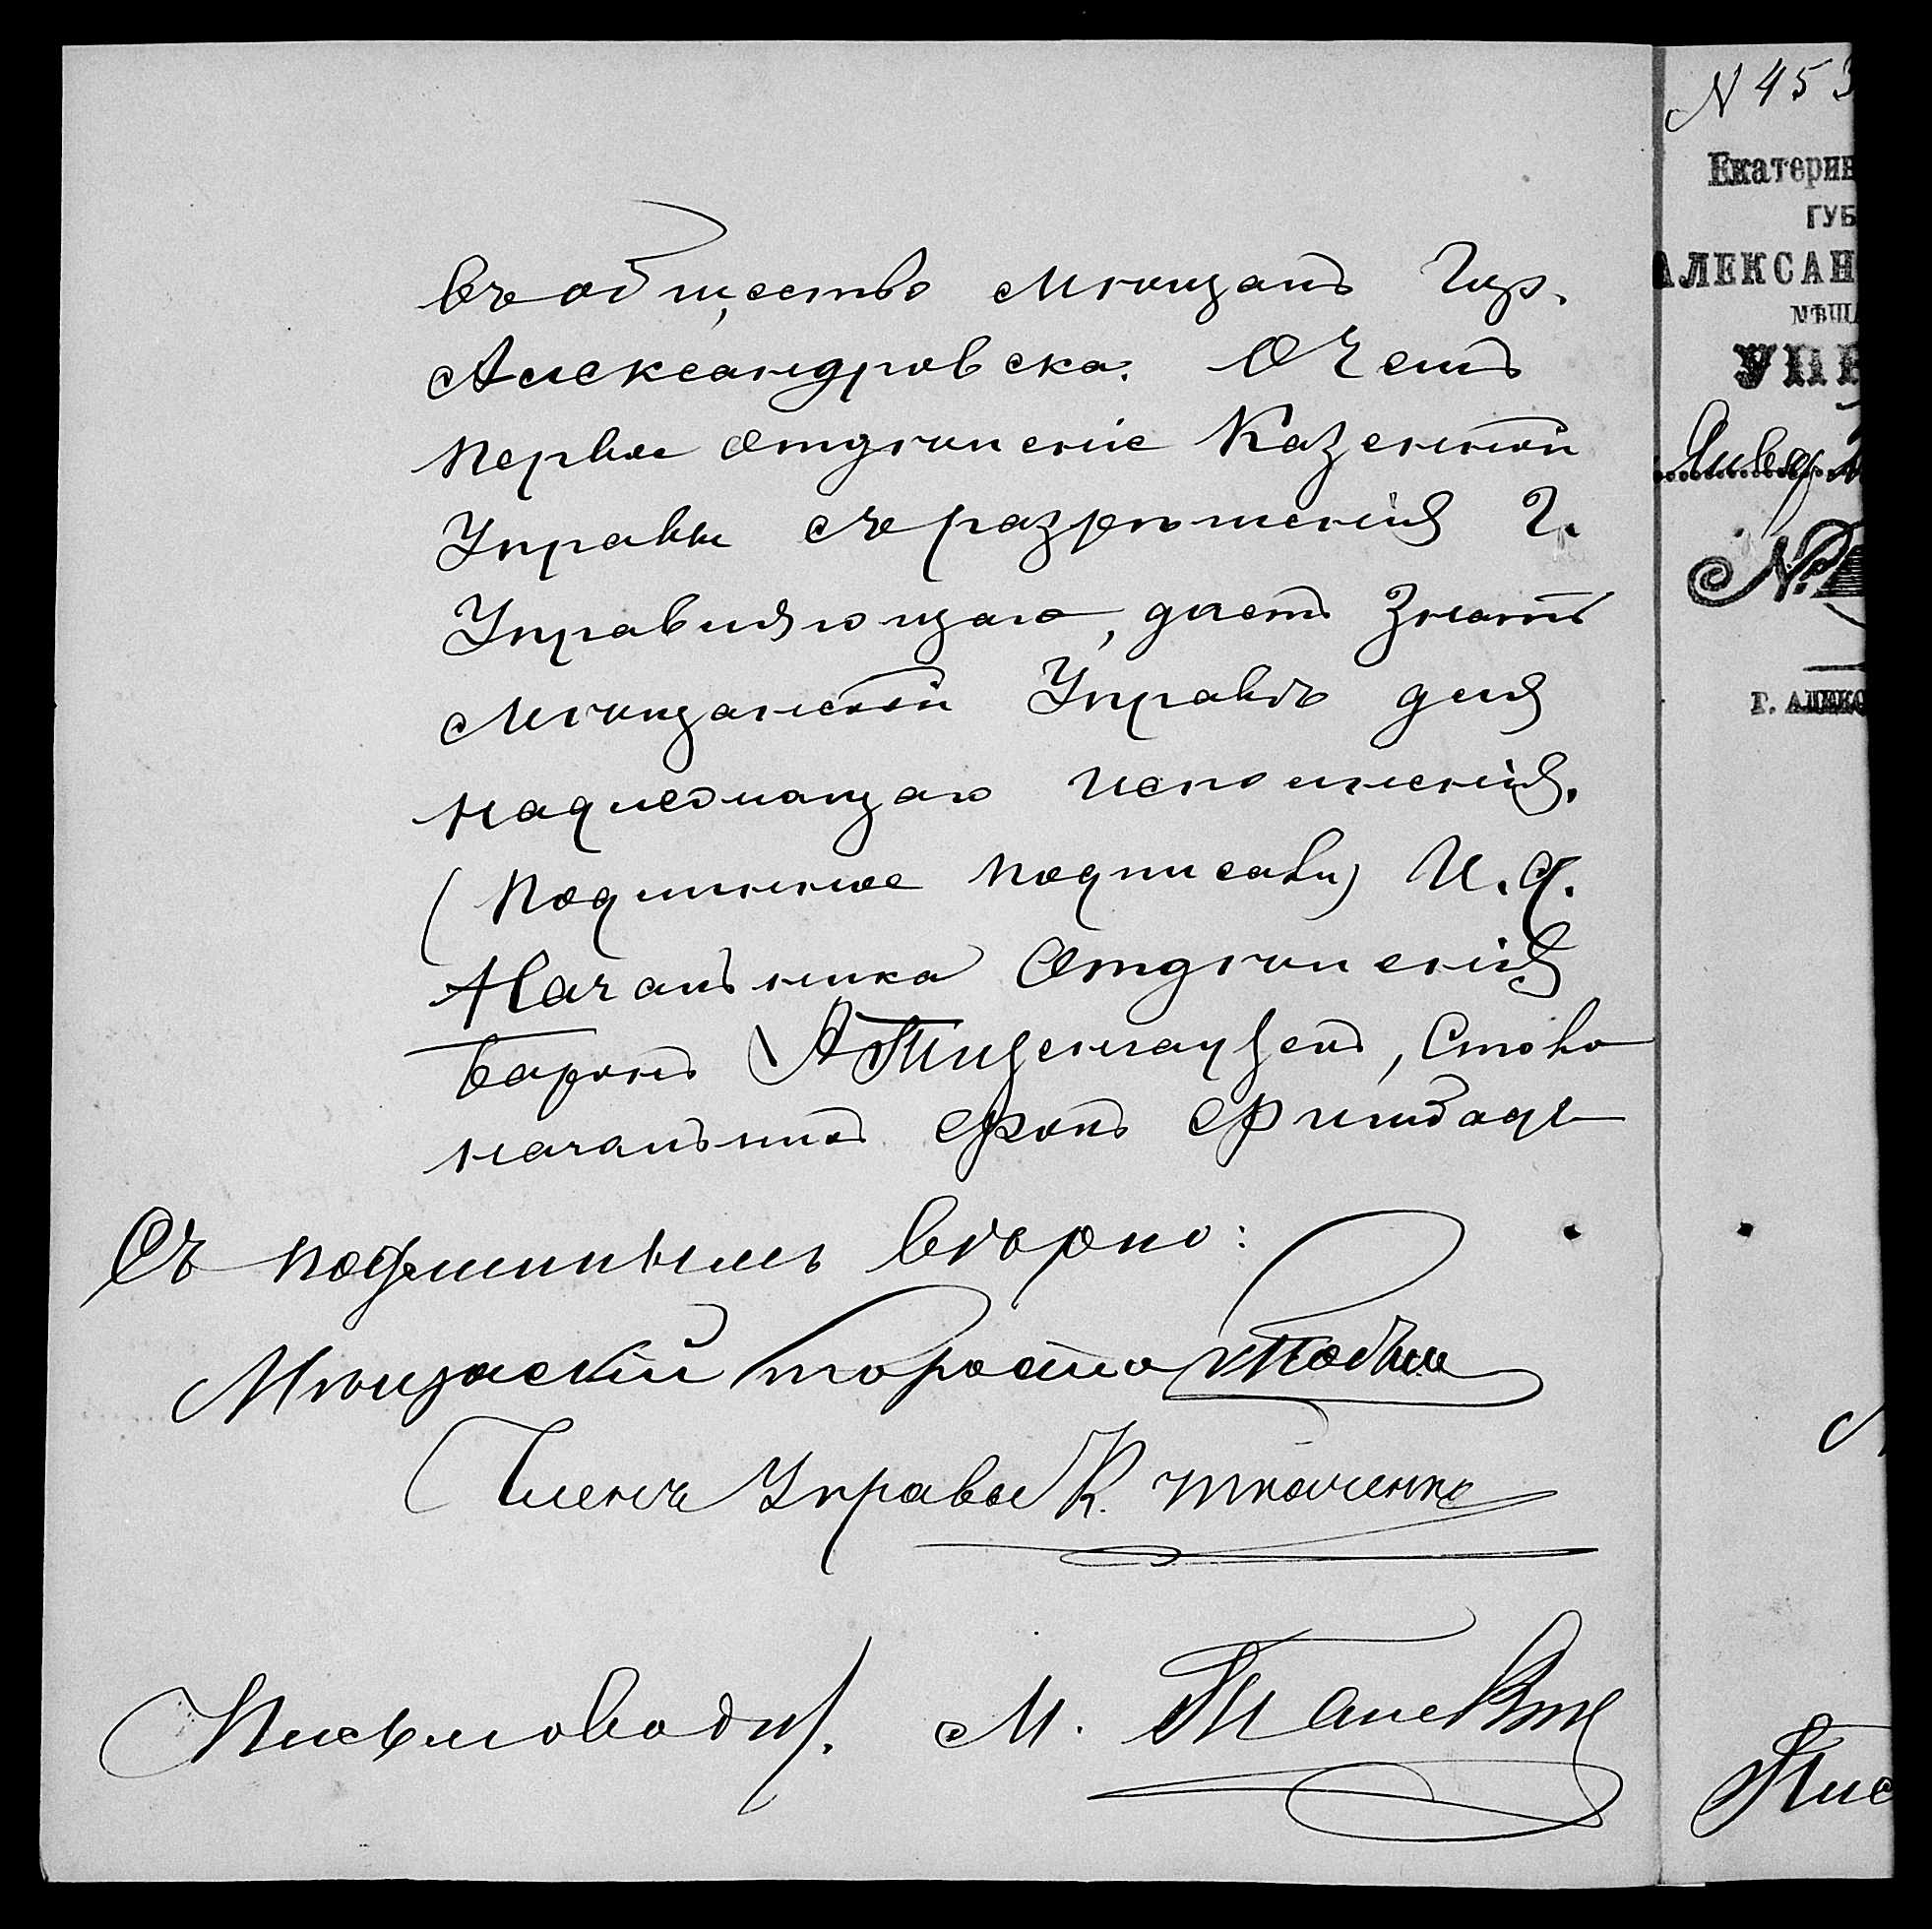 въ общество мѣщанъ Гор.
Александровска. О чемъ
первое отдѣленіе Казенной
Управы съ разрѣшенія Г.
Управляющаго, даетъ знать
Мѣщанской Управѣ для
надлежащаго исполненія.
(Подлинное подписали) И. д.
Начальника Отдѣленія
Баронъ А Тизенгаузенъ, Столо
начальникъ Фонъ
Съ подлиннымъ вѣрно:
Мѣщанскій староста
Членъ Управы К. Ткаченко
Письмовод. М.
N 453
Екатерин
ГУБ
АЛЕКСАН
МѢЩА
УПР
Январ
№
Г. АЛЕКС
Пис